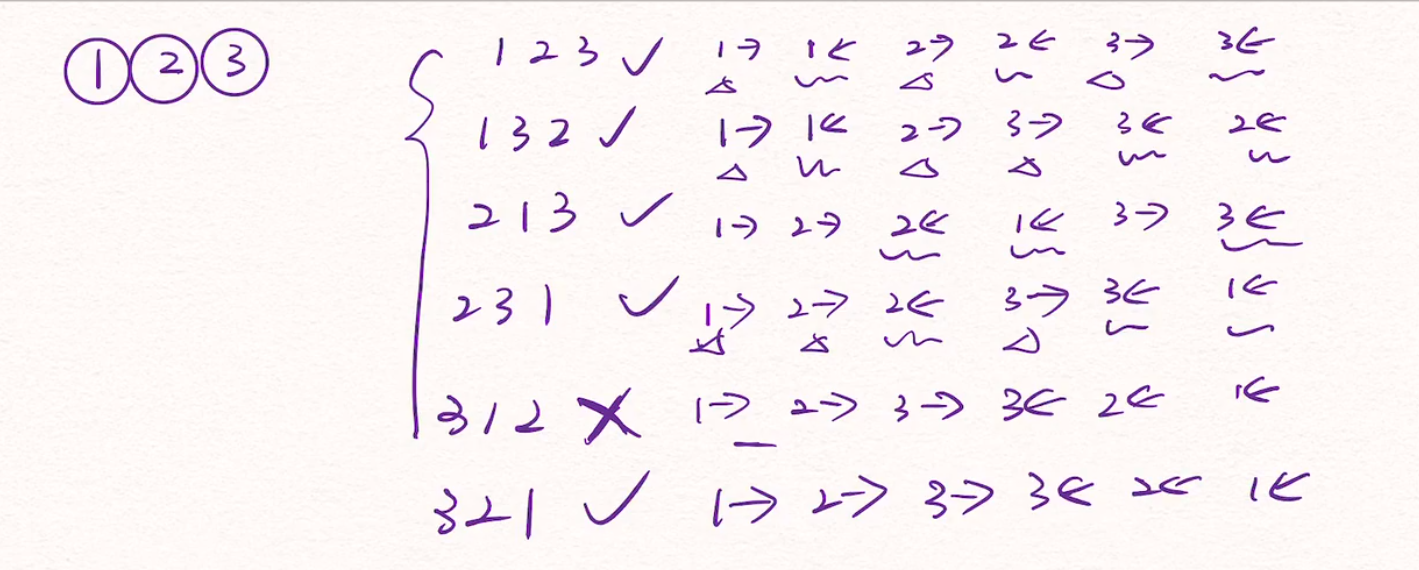 ① ② ③
1 2 3 ✓ 1→ 1← 2→ 2← 3→ 3←
1 3 2 ✓ 1→ 1← 2→ 3→ 3← 2←
2 1 3 ✓ 1→ 2→ 2← 1← 3→ 3←
2 3 1 ✓ 1→ 2→ 2← 3→ 3← 1←
3 1 2 ✗ 1→ 2→ 3→ 3← 2← 1←
3 2 1 ✓ 1→ 2→ 3→ 3← 2← 1←